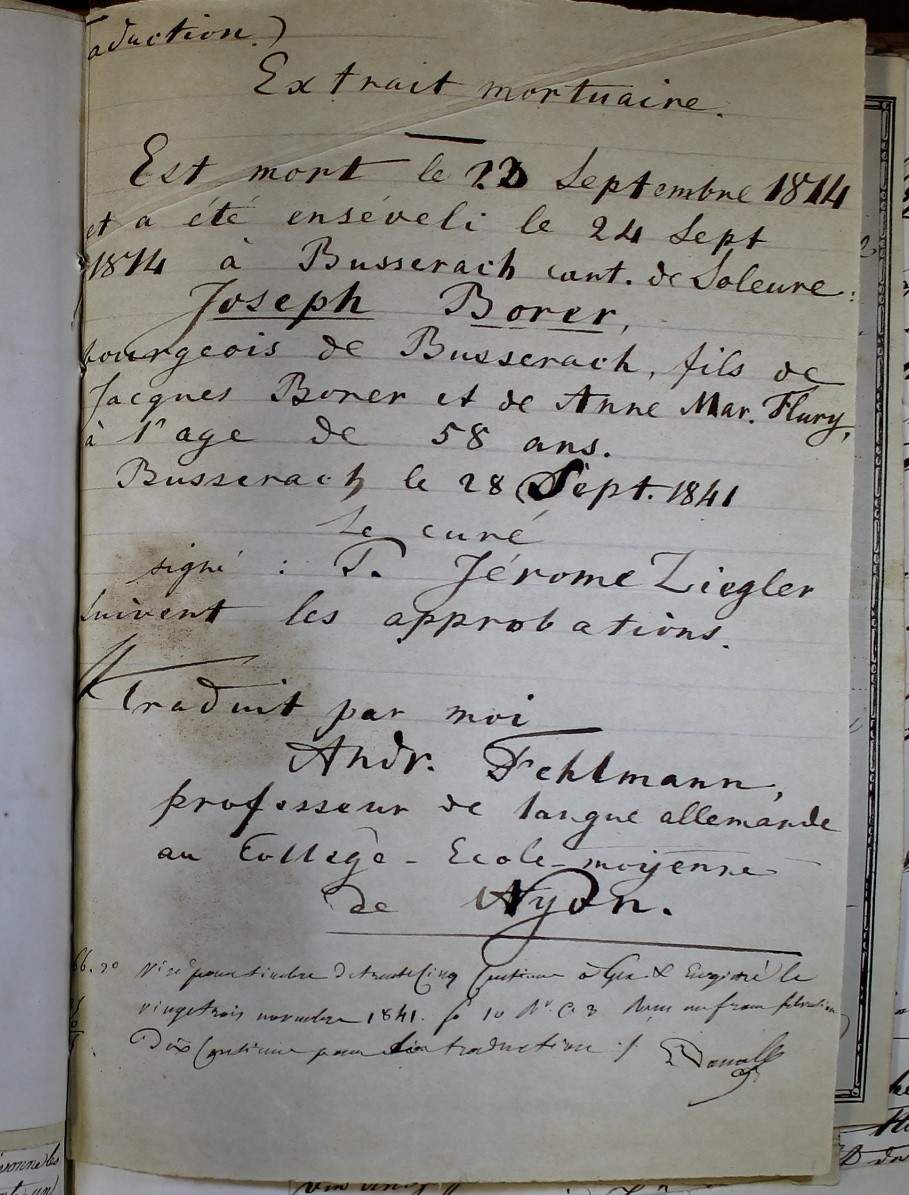 aduction.)
Extrait mortuaire.
Est mort le 22 Septembre 1814
et a été enséveli le 24 Sept
1814 à Busserach cant. de Soleure:
Joseph Borer,
bourgeois de Busserach, fils de
Jacques Borer et de Anne Mar. Flury,
à l'age de 58 ans.
Busserach le 28 Sept. 1841
Le curé
signé : P. Jérome Ziegler
Suivent les approbations.
Traduit par moi
Andr. Fehlmann,
professeur de langue allemande
au Collège-Ecole-moÿenne
de Nyon.
Visé pour timbre à trente cinq centimes à Gex & Enregistré le
vingt trois novembre 1841. fo 10 Reçu un franc
Dix Centimes pour traduction